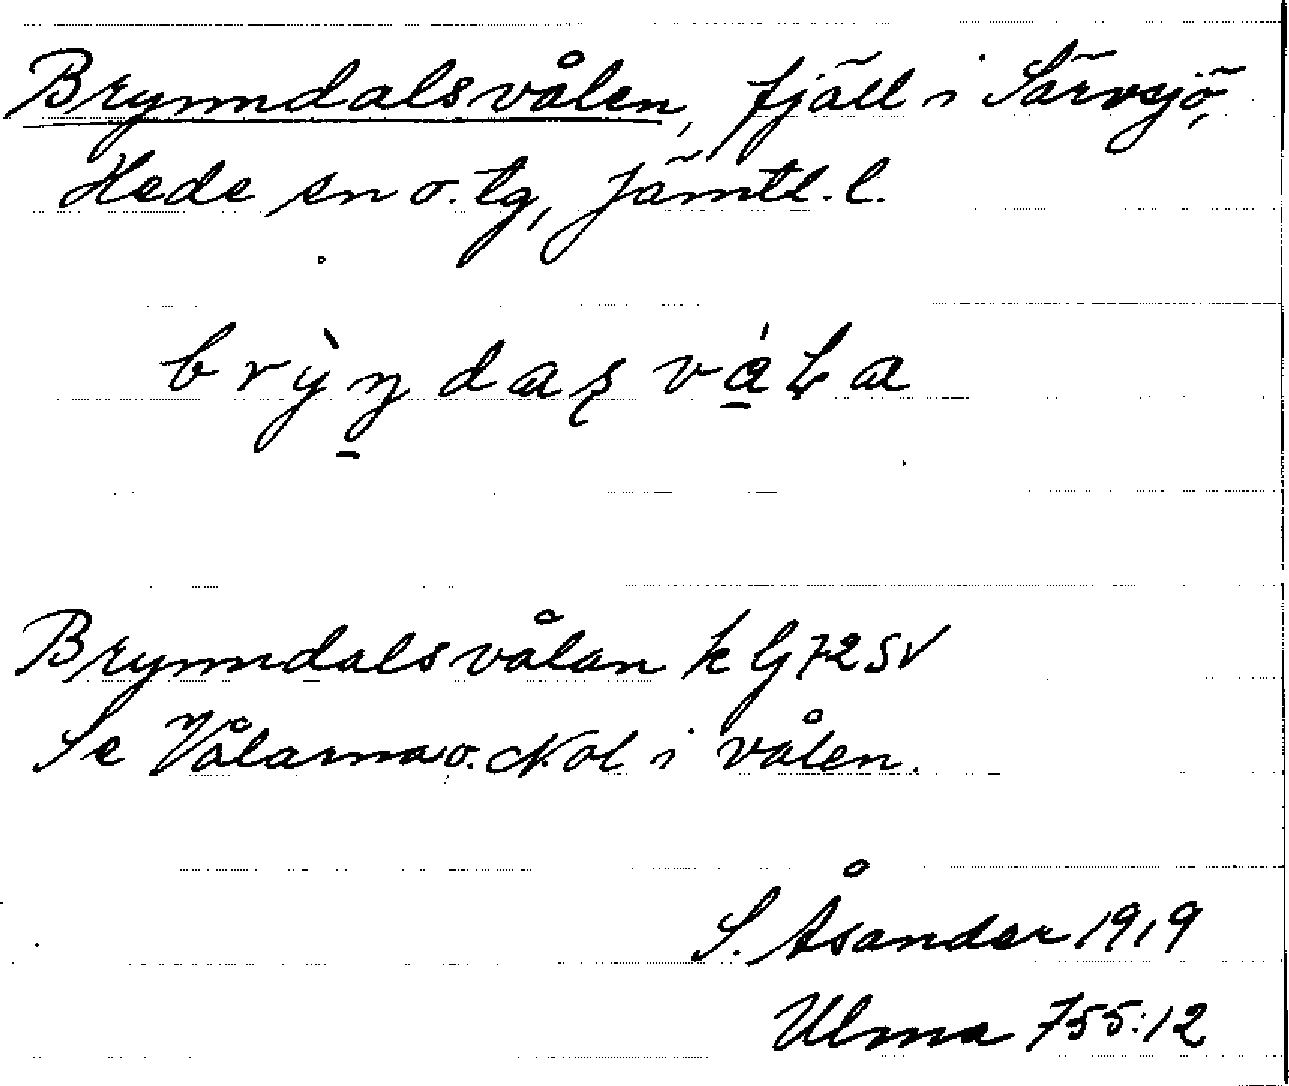 Brynndalsvålen, fjäll i Särvsjö,
Hede sn o. tg, Jämtl. l.
Brynndalsvålan k G 72 SV
Se Vålarna o. Nol i vålen.
S. Åsander 1919
Ulma 755:12